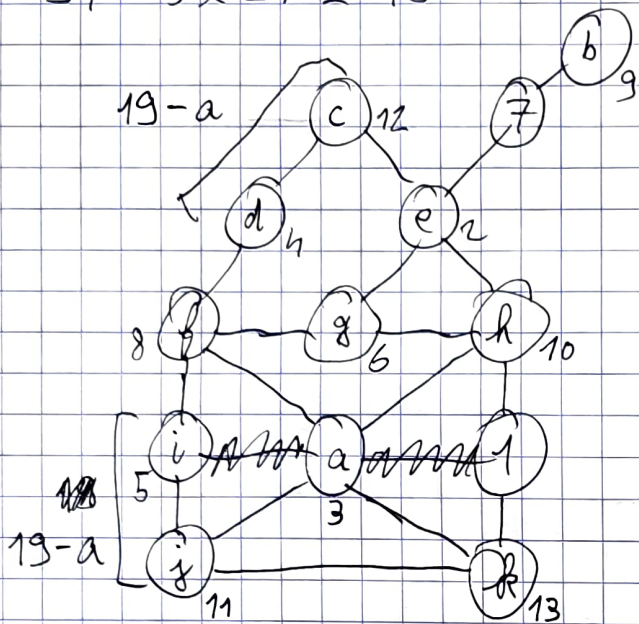 b
9
7
19-a
c 12
d 4
e 2
8 f
g 6
h 10
i
5
a
3
1
19-a
j
11
k
13